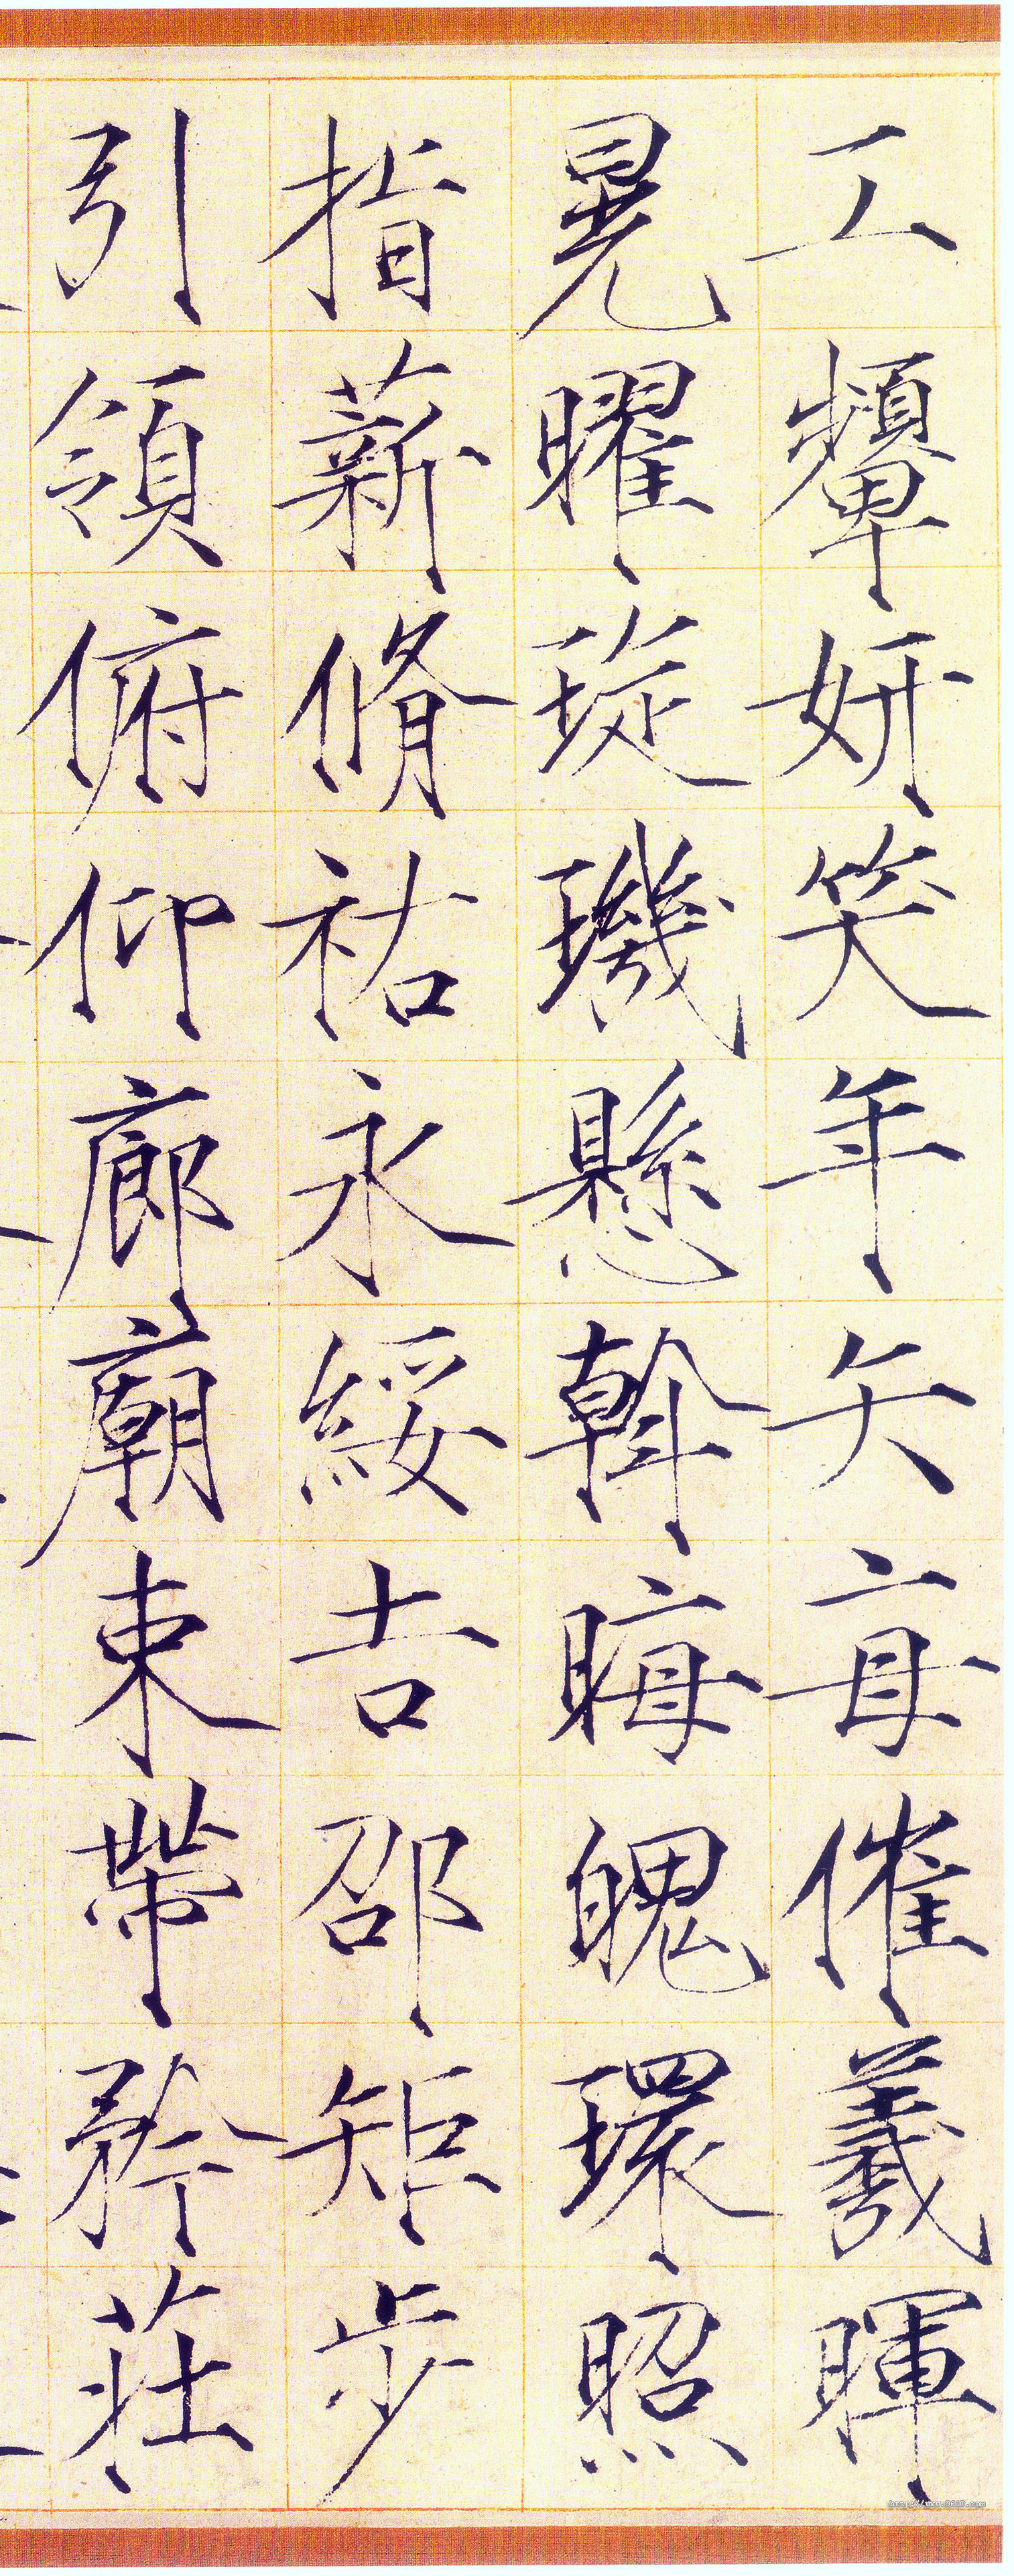 工颦妍笑年矢每催羲暉
晃曜琁璣懸斡晦魄環照
指薪脩祐永綏吉邵矩步
引領俯仰廊廟束帶矜莊